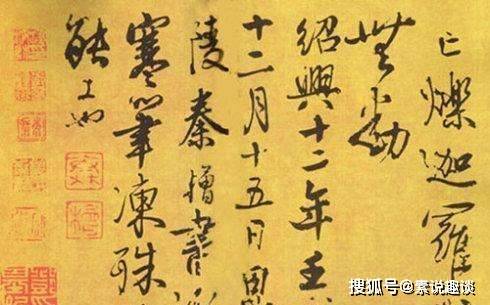 亡爍迦羅
無動
紹興十二年壬
十二月十五日
陵秦檜書
寒筆凍殊
能工也
搜狐号@素说趣谈